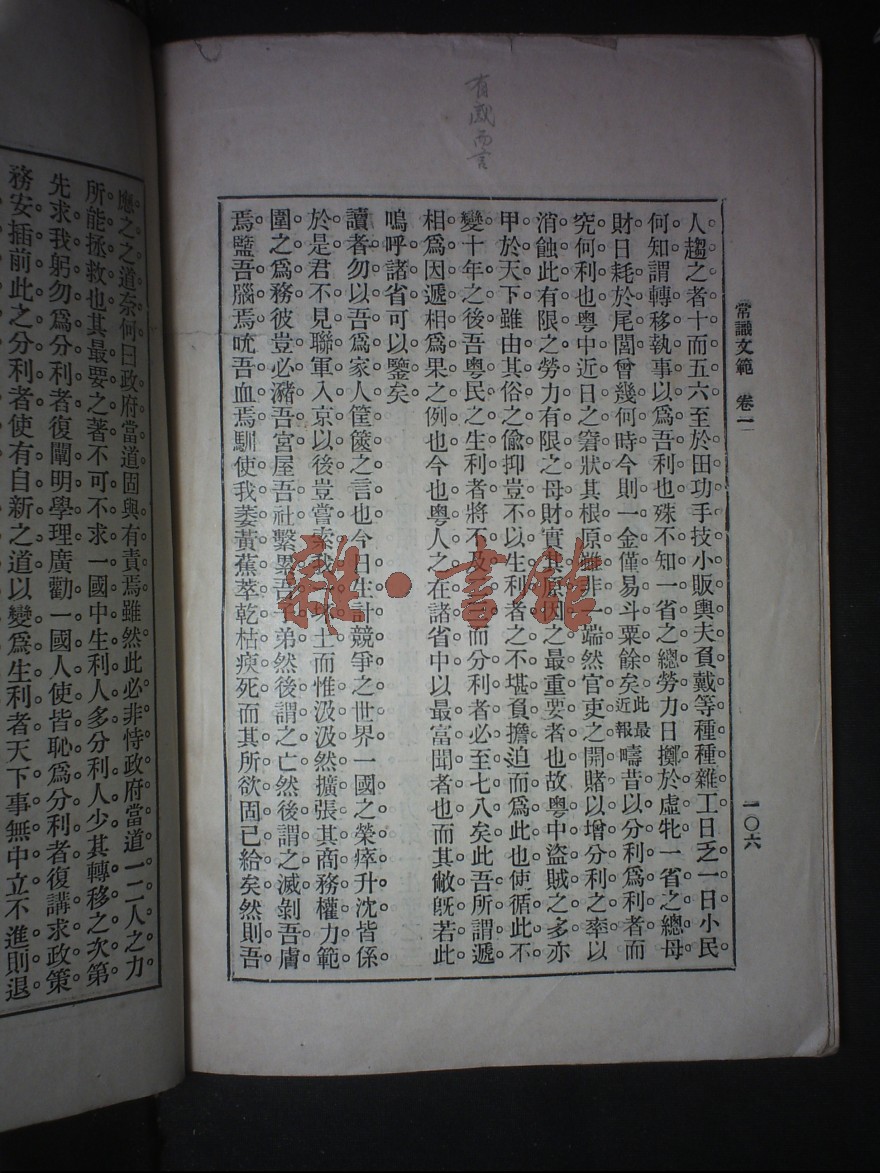 有感而言
常識文範 卷一
一〇六
人趨之者十而五六至於田功手技小販輿夫負戴等種種雜工日乏一日小民
何知謂轉移執事以爲吾利也殊不知一省之總勞力日擲於虛牝一省之總母
財日耗於尾閭曾幾何時今則一金僅易斗粟餘矣此最近報疇昔以分利爲利者而
究何利也粤中近日之窘狀其根原雖非一端然官吏之開賭以增分利之率以
消蝕此有限之勞力有限之母財實其原因之最重要者也故粤中盜賊之多亦
甲於天下雖由其俗之偸抑豈不以生利者之不堪負擔迫而爲此也使循此不
變十年之後吾粤民之生利者將不及而分利者必至七八矣此吾所謂遞
相爲因遞相爲果之例也今也粤人之在諸省中以最富聞者也而其敝旣若此
嗚呼諸省可以鑒矣
讀者勿以吾爲家人筐篋之言也今日生計競爭之世界一國之榮瘁升沈皆係
於是君不見聯軍入京以後豈嘗索我一土而惟汲汲然擴張其商務權力範
圍之爲務彼豈必瀦吾宮屋吾社繫纍吾子弟然後謂之亡然後謂之滅剝吾膚
焉盬吾腦焉吮吾血焉馴使我萎黃蕉萃乾枯瘐死而其所欲固已給矣然則吾
應之之道奈何曰政府當道固與有責焉雖然此必非恃政府當道一二人之力
所能拯救也其最要之著不可不求一國中生利人多分利人少其轉移之次第
先求我躬勿爲分利者復闡明學理廣勸一國人使皆恥爲分利者復講求政策
務安插前此之分利者使有自新之道以變爲生利者天下事無中立不進則退
雜·書館